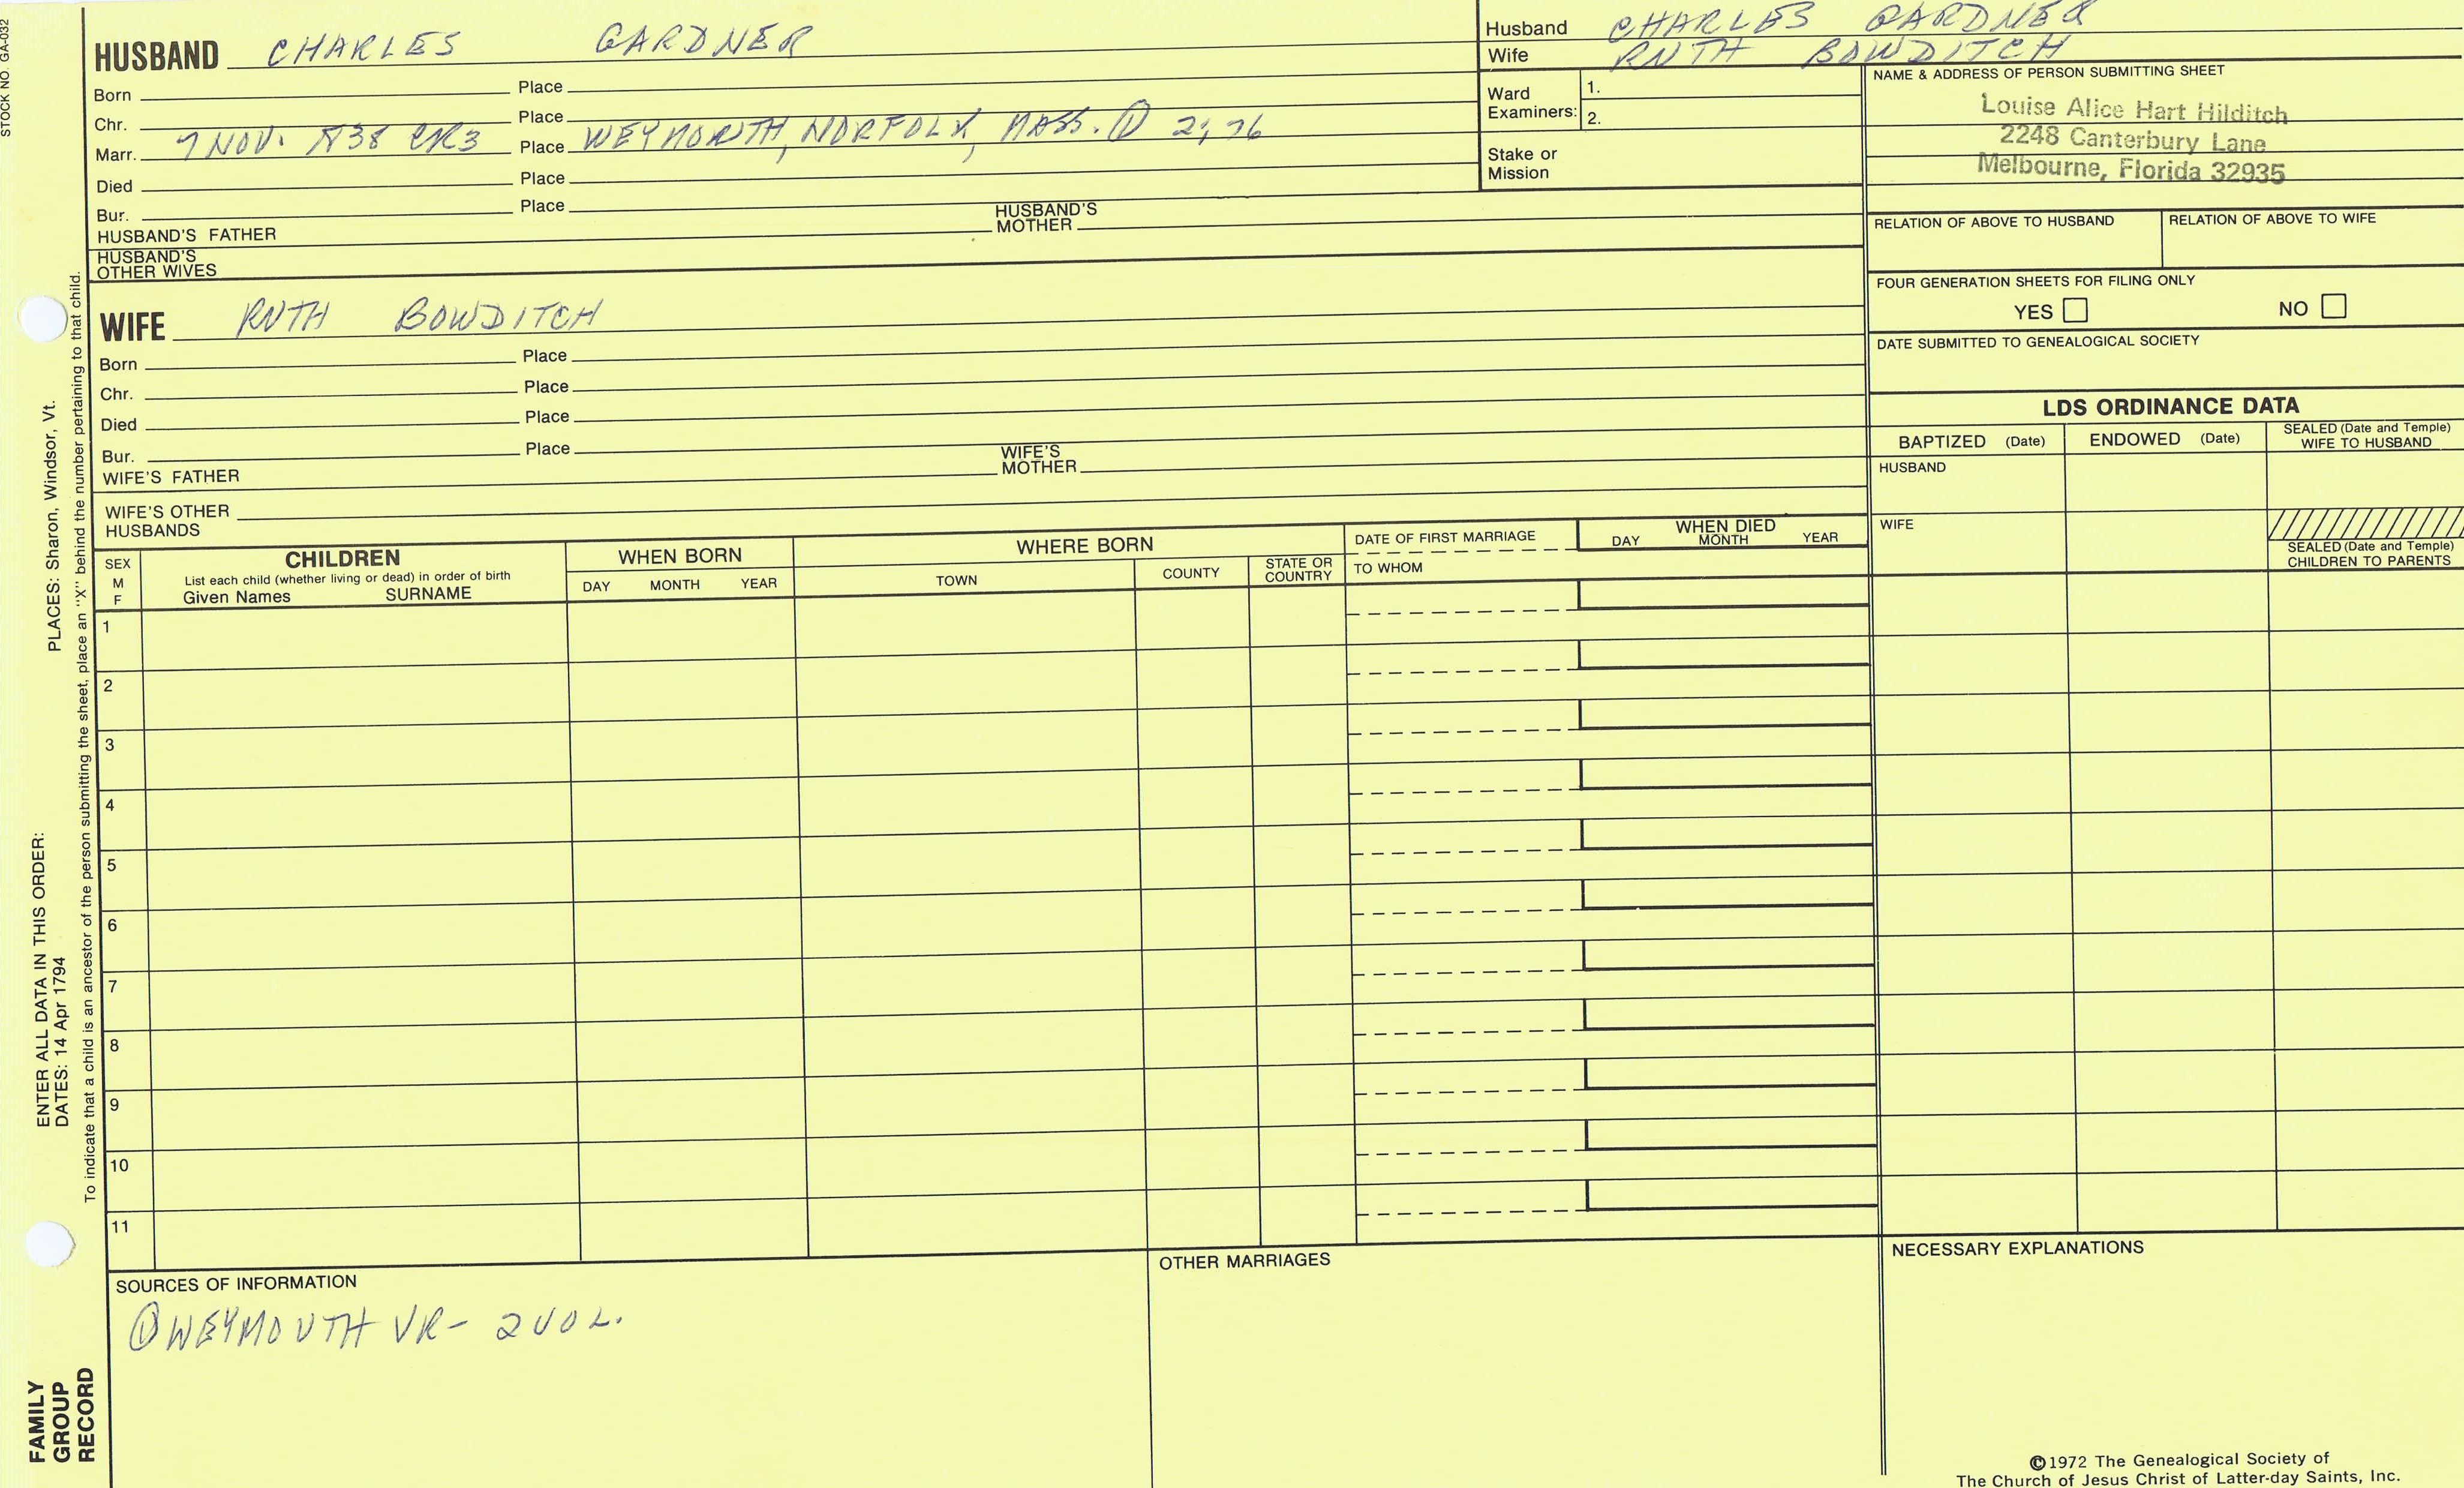 STOCK NO. GA-032
HUSBAND CHARLES GARDNER
Born Place
Chr. Place
Marr. 7 NOV. CR3 Place WEYMOUTH, NORFOLK, MASS. ① 2;76
Died Place
Bur. Place
HUSBAND'S FATHER HUSBAND'S MOTHER
HUSBAND'S OTHER WIVES
Husband CHARLES GARDNER
Wife RUTH BOWDITCH
Ward Examiners: 1.
2.
Stake or Mission
NAME & ADDRESS OF PERSON SUBMITTING SHEET
Louise Alice Hart Hilditch
2248 Canterbury Lane
Melbourne, Florida 32935
RELATION OF ABOVE TO HUSBAND RELATION OF ABOVE TO WIFE
FOUR GENERATION SHEETS FOR FILING ONLY
YES NO
DATE SUBMITTED TO GENEALOGICAL SOCIETY
WIFE RUTH BOWDITCH
Born Place
Chr. Place
Died Place
Bur. Place
WIFE'S FATHER WIFE'S MOTHER
WIFE'S OTHER HUSBANDS
LDS ORDINANCE DATA
BAPTIZED (Date) ENDOWED (Date) SEALED (Date and Temple) WIFE TO HUSBAND
HUSBAND
WIFE
SEALED (Date and Temple) CHILDREN TO PARENTS
SEX M F
CHILDREN
List each child (whether living or dead) in order of birth
Given Names SURNAME
WHEN BORN
DAY MONTH YEAR
WHERE BORN
TOWN COUNTY STATE OR COUNTRY
DATE OF FIRST MARRIAGE
TO WHOM
WHEN DIED
DAY MONTH YEAR
1
2
3
4
5
6
7
8
9
10
11
SOURCES OF INFORMATION
① WEYMOUTH VR- 2 VOL.
OTHER MARRIAGES
NECESSARY EXPLANATIONS
©1972 The Genealogical Society of
The Church of Jesus Christ of Latter-day Saints, Inc.
FAMILY GROUP RECORD
ENTER ALL DATA IN THIS ORDER:
DATES: 14 Apr 1794
PLACES: Sharon, Windsor, Vt.
To indicate that a child is an ancestor of the person submitting the sheet, place an "X" behind the number pertaining to that child.